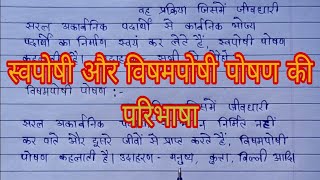 वह प्रक्रिया जिसमें जीवधारी
सरल अकार्बनिक पदार्थों से कार्बनिक भोज्य
पदार्थों का निर्माण स्वयं कर लेते हैं, स्वपोषी पोषण
स्वपोषी और विषमपोषी पोषण की
विषमपोषी पोषण :-
परिभाषा
जीवधारी
सरल अकार्बनिक निर्मित नहीं
कर पाते और दूसरे जीवों से प्राप्त करते हैं, विषमपोषी
पोषण कहलाती है। उदाहरण - मनुष्य, कुत्ता, बिल्ली आदि।